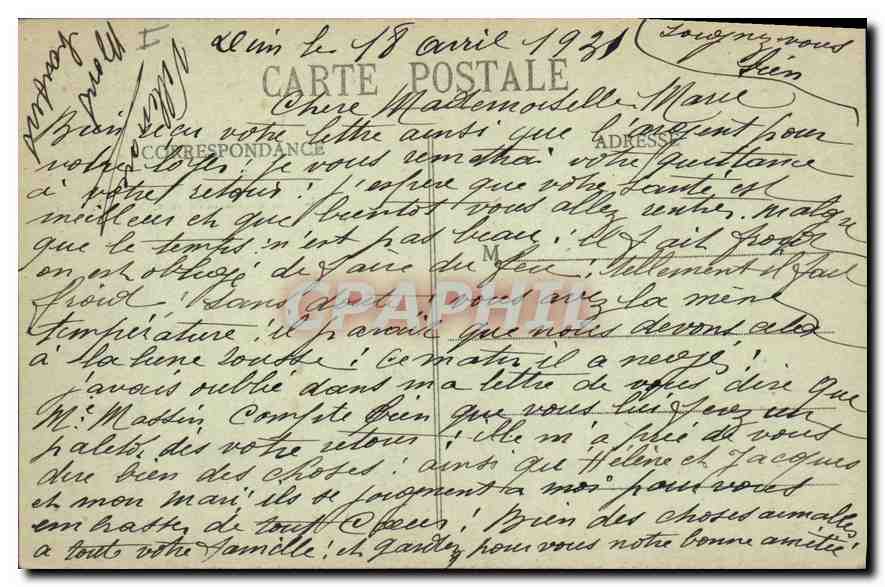 Dim le 18 avril 1921
Soignez vous
bien
CARTE POSTALE
Chère Mademoiselle Marie
CORRESPONDANCE
ADRESSE
Bien reçu votre lettre ainsi que l'argent pour
votre je vous remettrai votre quittance
à votre retour ! j'espère que votre santé est
meilleur et que bientôt vous allez rentrer. malgré
que le temps n'est pas beau ! il fait froid
M
on est obligé de faire du feu ! tellement il fait
froid ! sans doute ! vous avez la même
CPAPHIL
température ! il parait que nous devons cela
à la lune rousse ! ce matin il a neigé !
j'avais oublié dans ma lettre de vous dire que
Me Massin compte bien que vous lui ferez un
paletot dès votre retour ! elle m'a prié de vous
dire bien des choses ! ainsi que Hélène et Jacques
et mon mari ils se joignent a moi pour vous
embrasser de tout Coeur ! Bien des choses aimables
a toute votre famille ! et gardez pour vous notre bonne amitié !